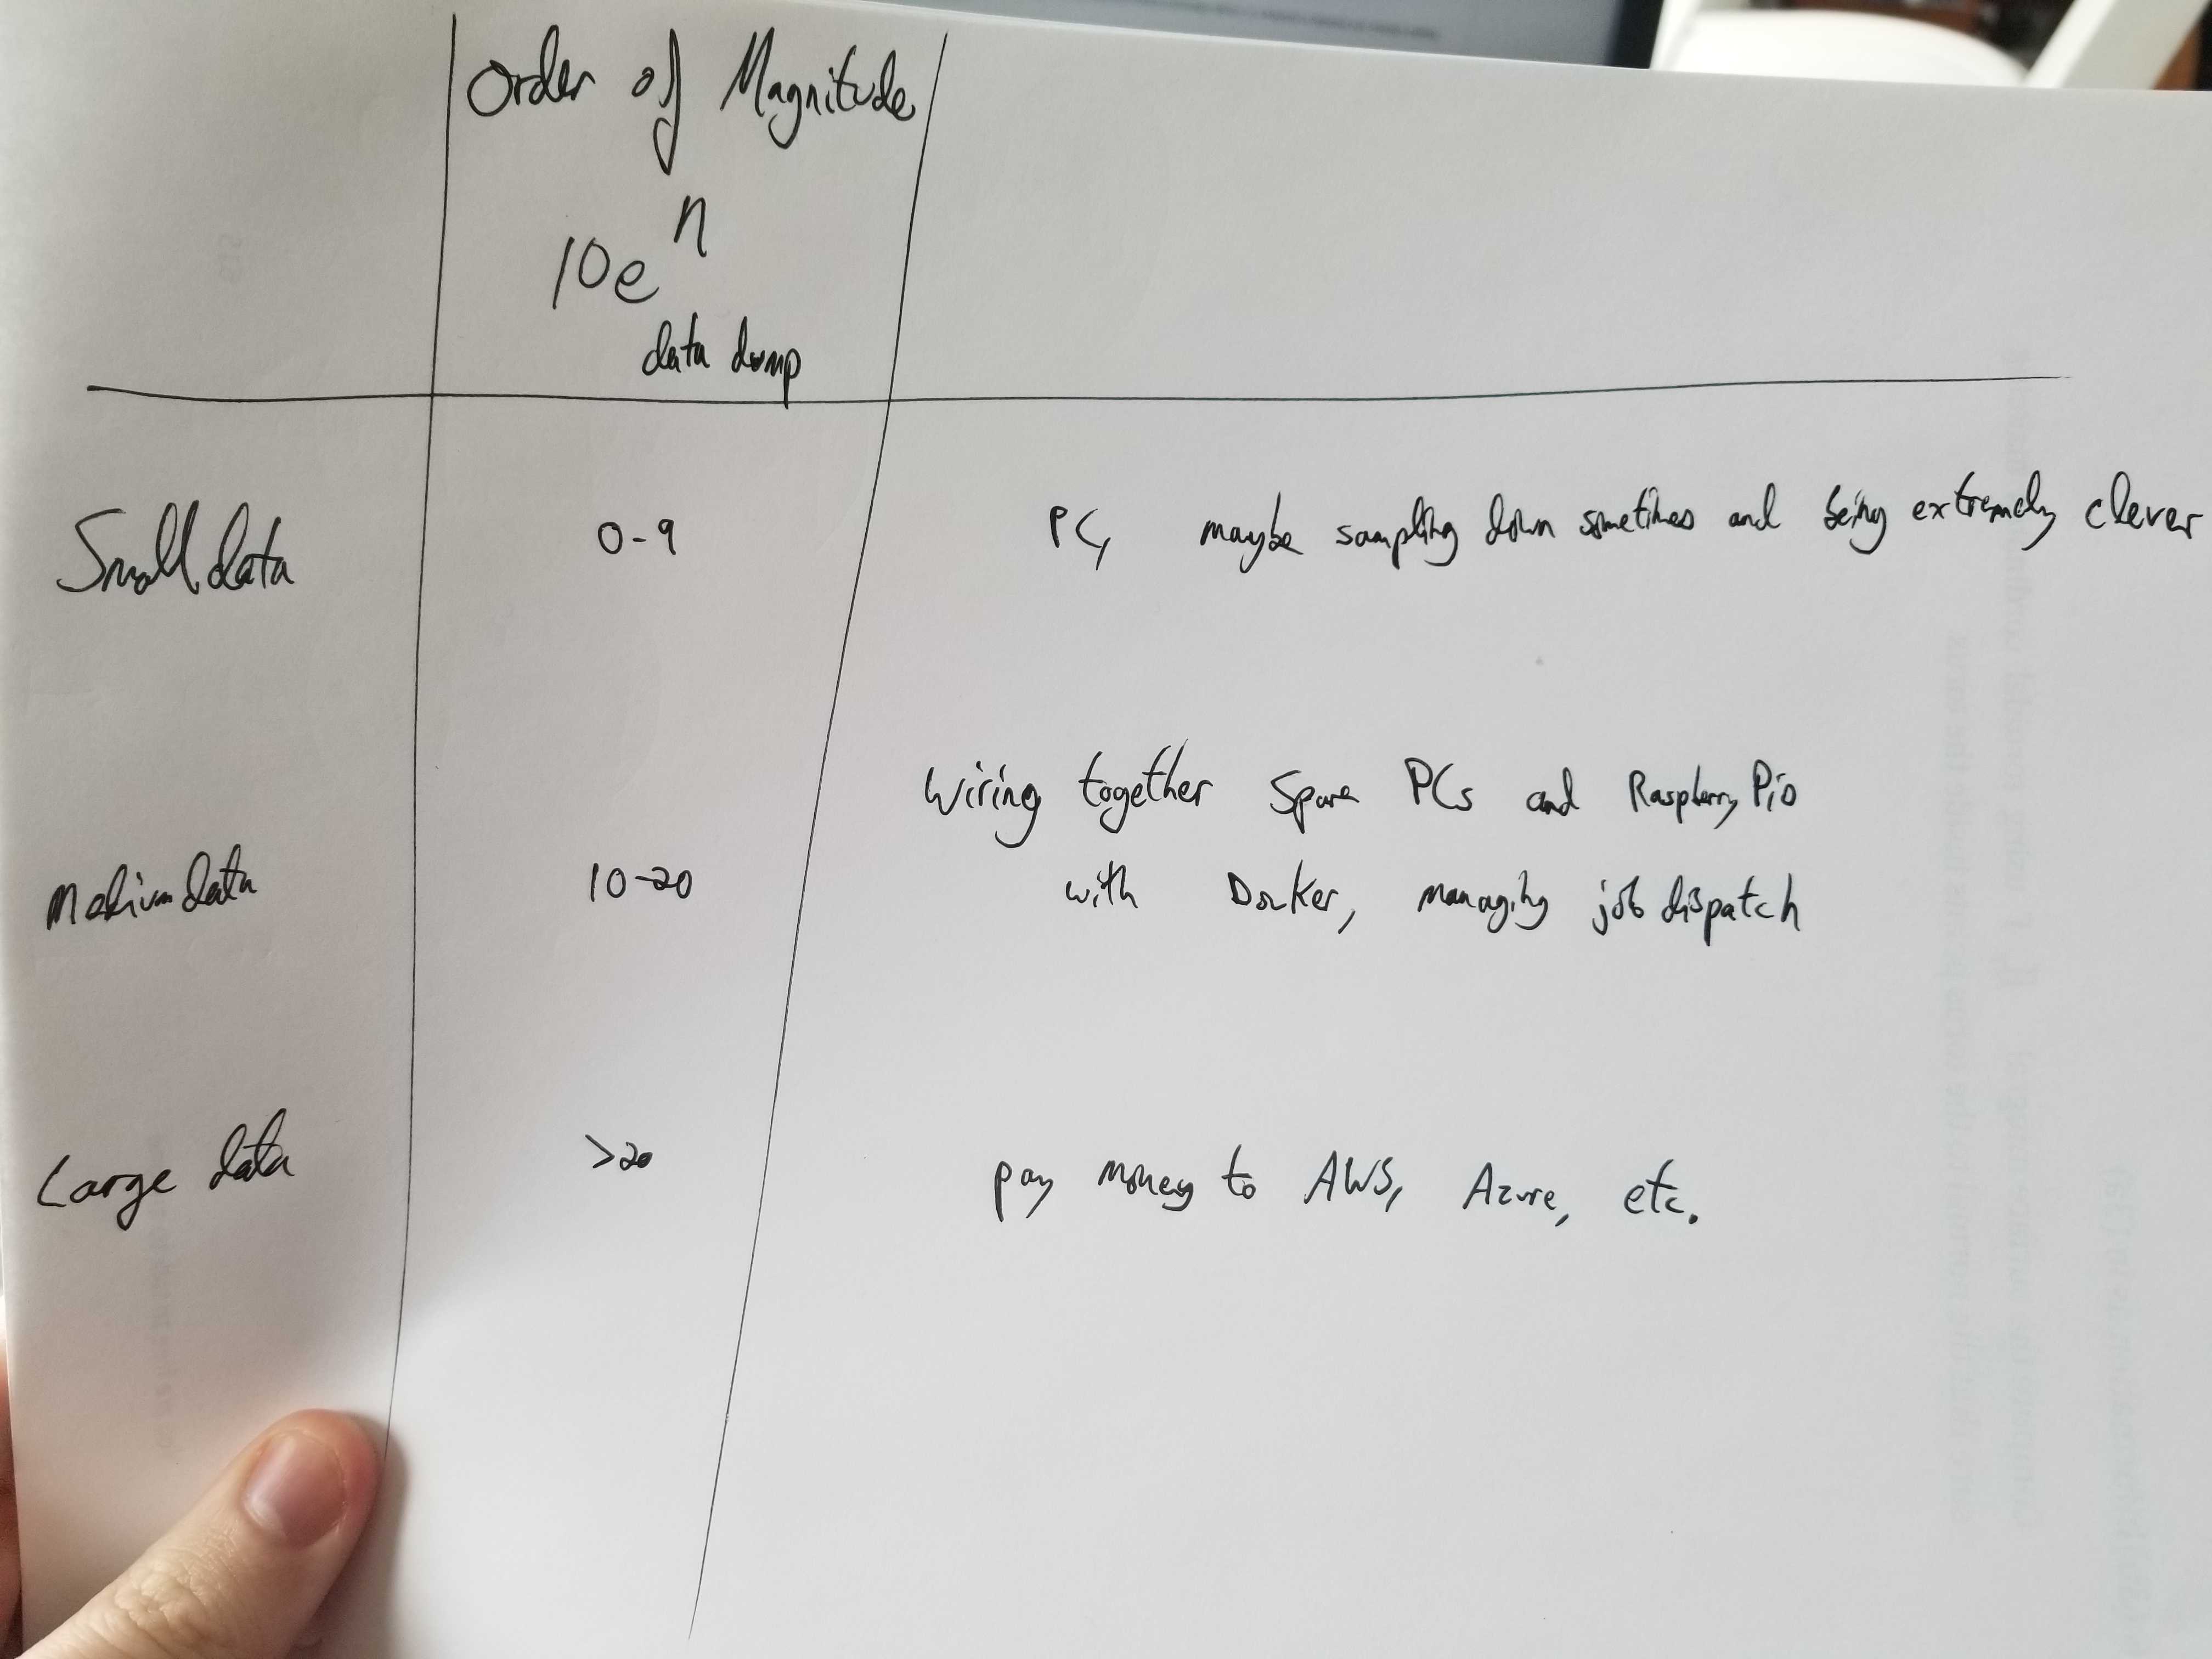 Order of Magnitude
10e^n
data dump
Small data 0-9 PC, maybe sampling down sometimes and being extremely clever
Wiring together Spare PCs and Raspberry Pis
Medium data 10-20 with Docker, managing job dispatch
Large data >20 pay money to AWS, Azure, etc.